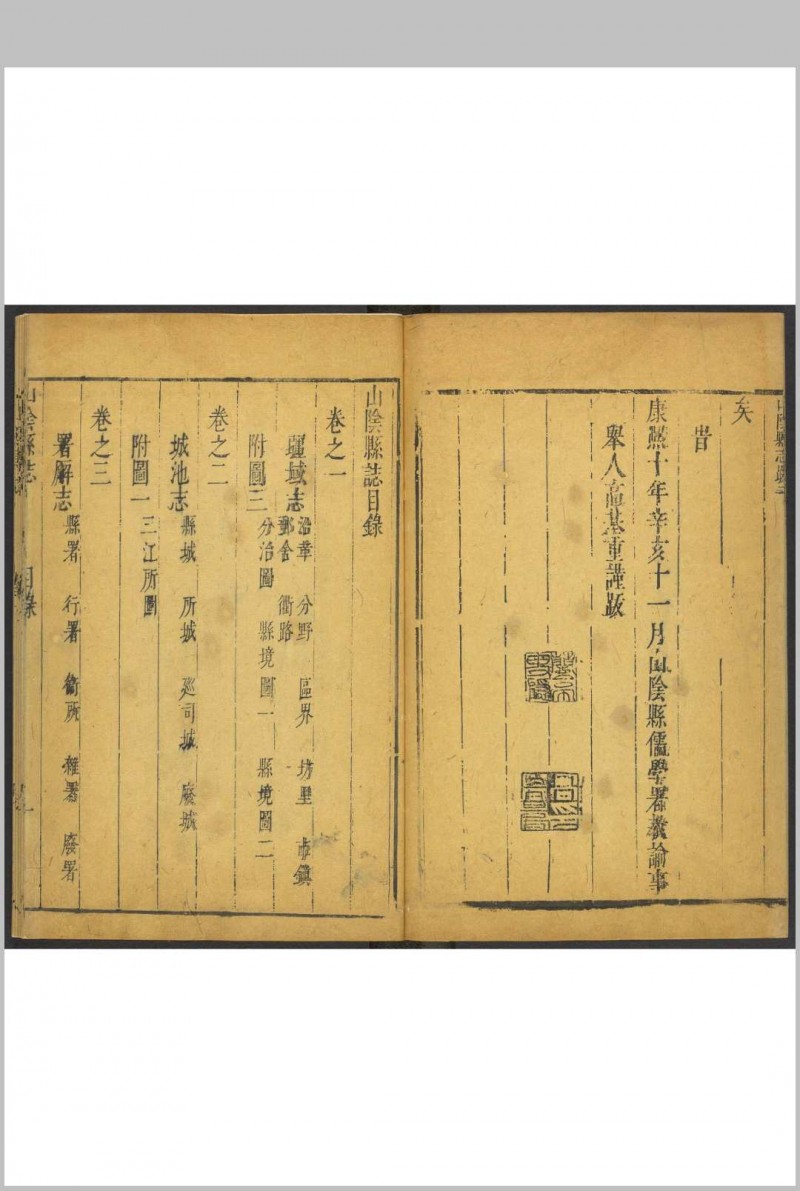 山陰縣志跋
矣
旹
康熙十年辛亥十一月山陰縣儒學署教諭事
舉人高基重謹跋
山陰縣誌目錄
卷之一
疆域志 沿革 分野 區界 坊里 市鎮
郵舍 衢路
附圖三 分治圖 縣境圖一 縣境圖二
卷之二
城池志 縣城 所城 廵司城 廢城
附圖一 三江所圖
卷之三
署廨志 縣署 行署 衞所 雜署 廢署
山陰縣誌 目錄 一